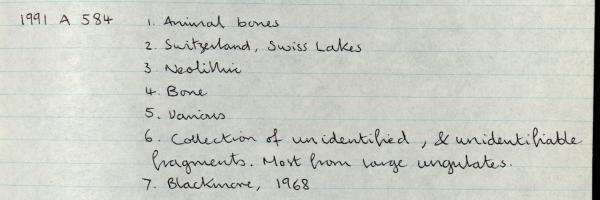 1991 A 584 1. Animal bones
2. Switzerland, Swiss Lakes
3. Neolithic
4. Bone
5. Various
6. Collection of unidentified, & unidentifiable
fragments. Most from large ungulates.
7. Blackmore, 1968